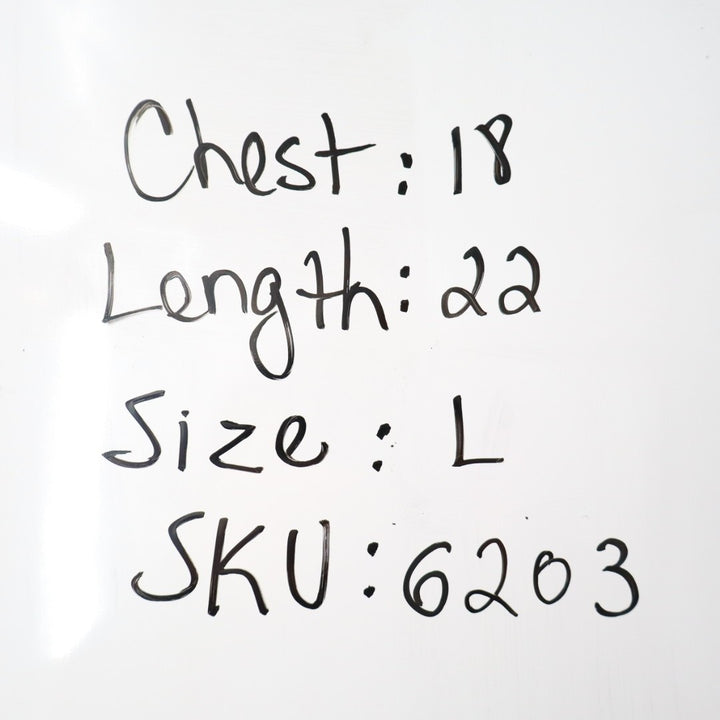 Chest: 18
Length: 22
Size: L
SKU: 6203